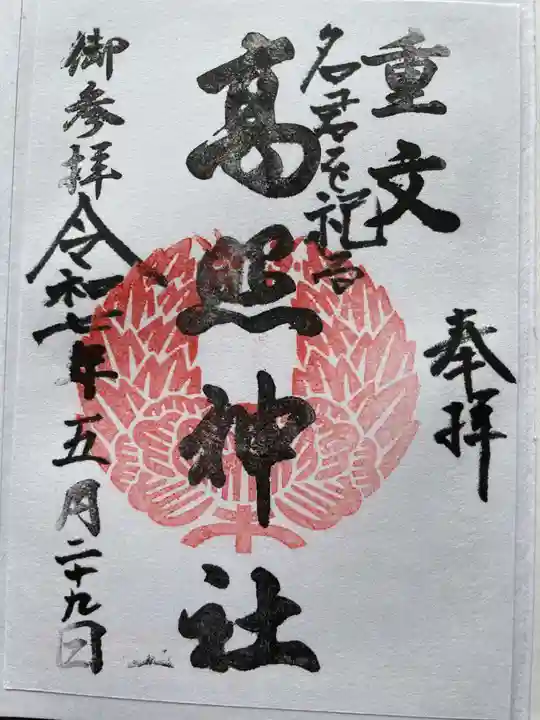 奉拝
重文
名君を祀る
高照神社
御参拝
令和七年五月二十九日